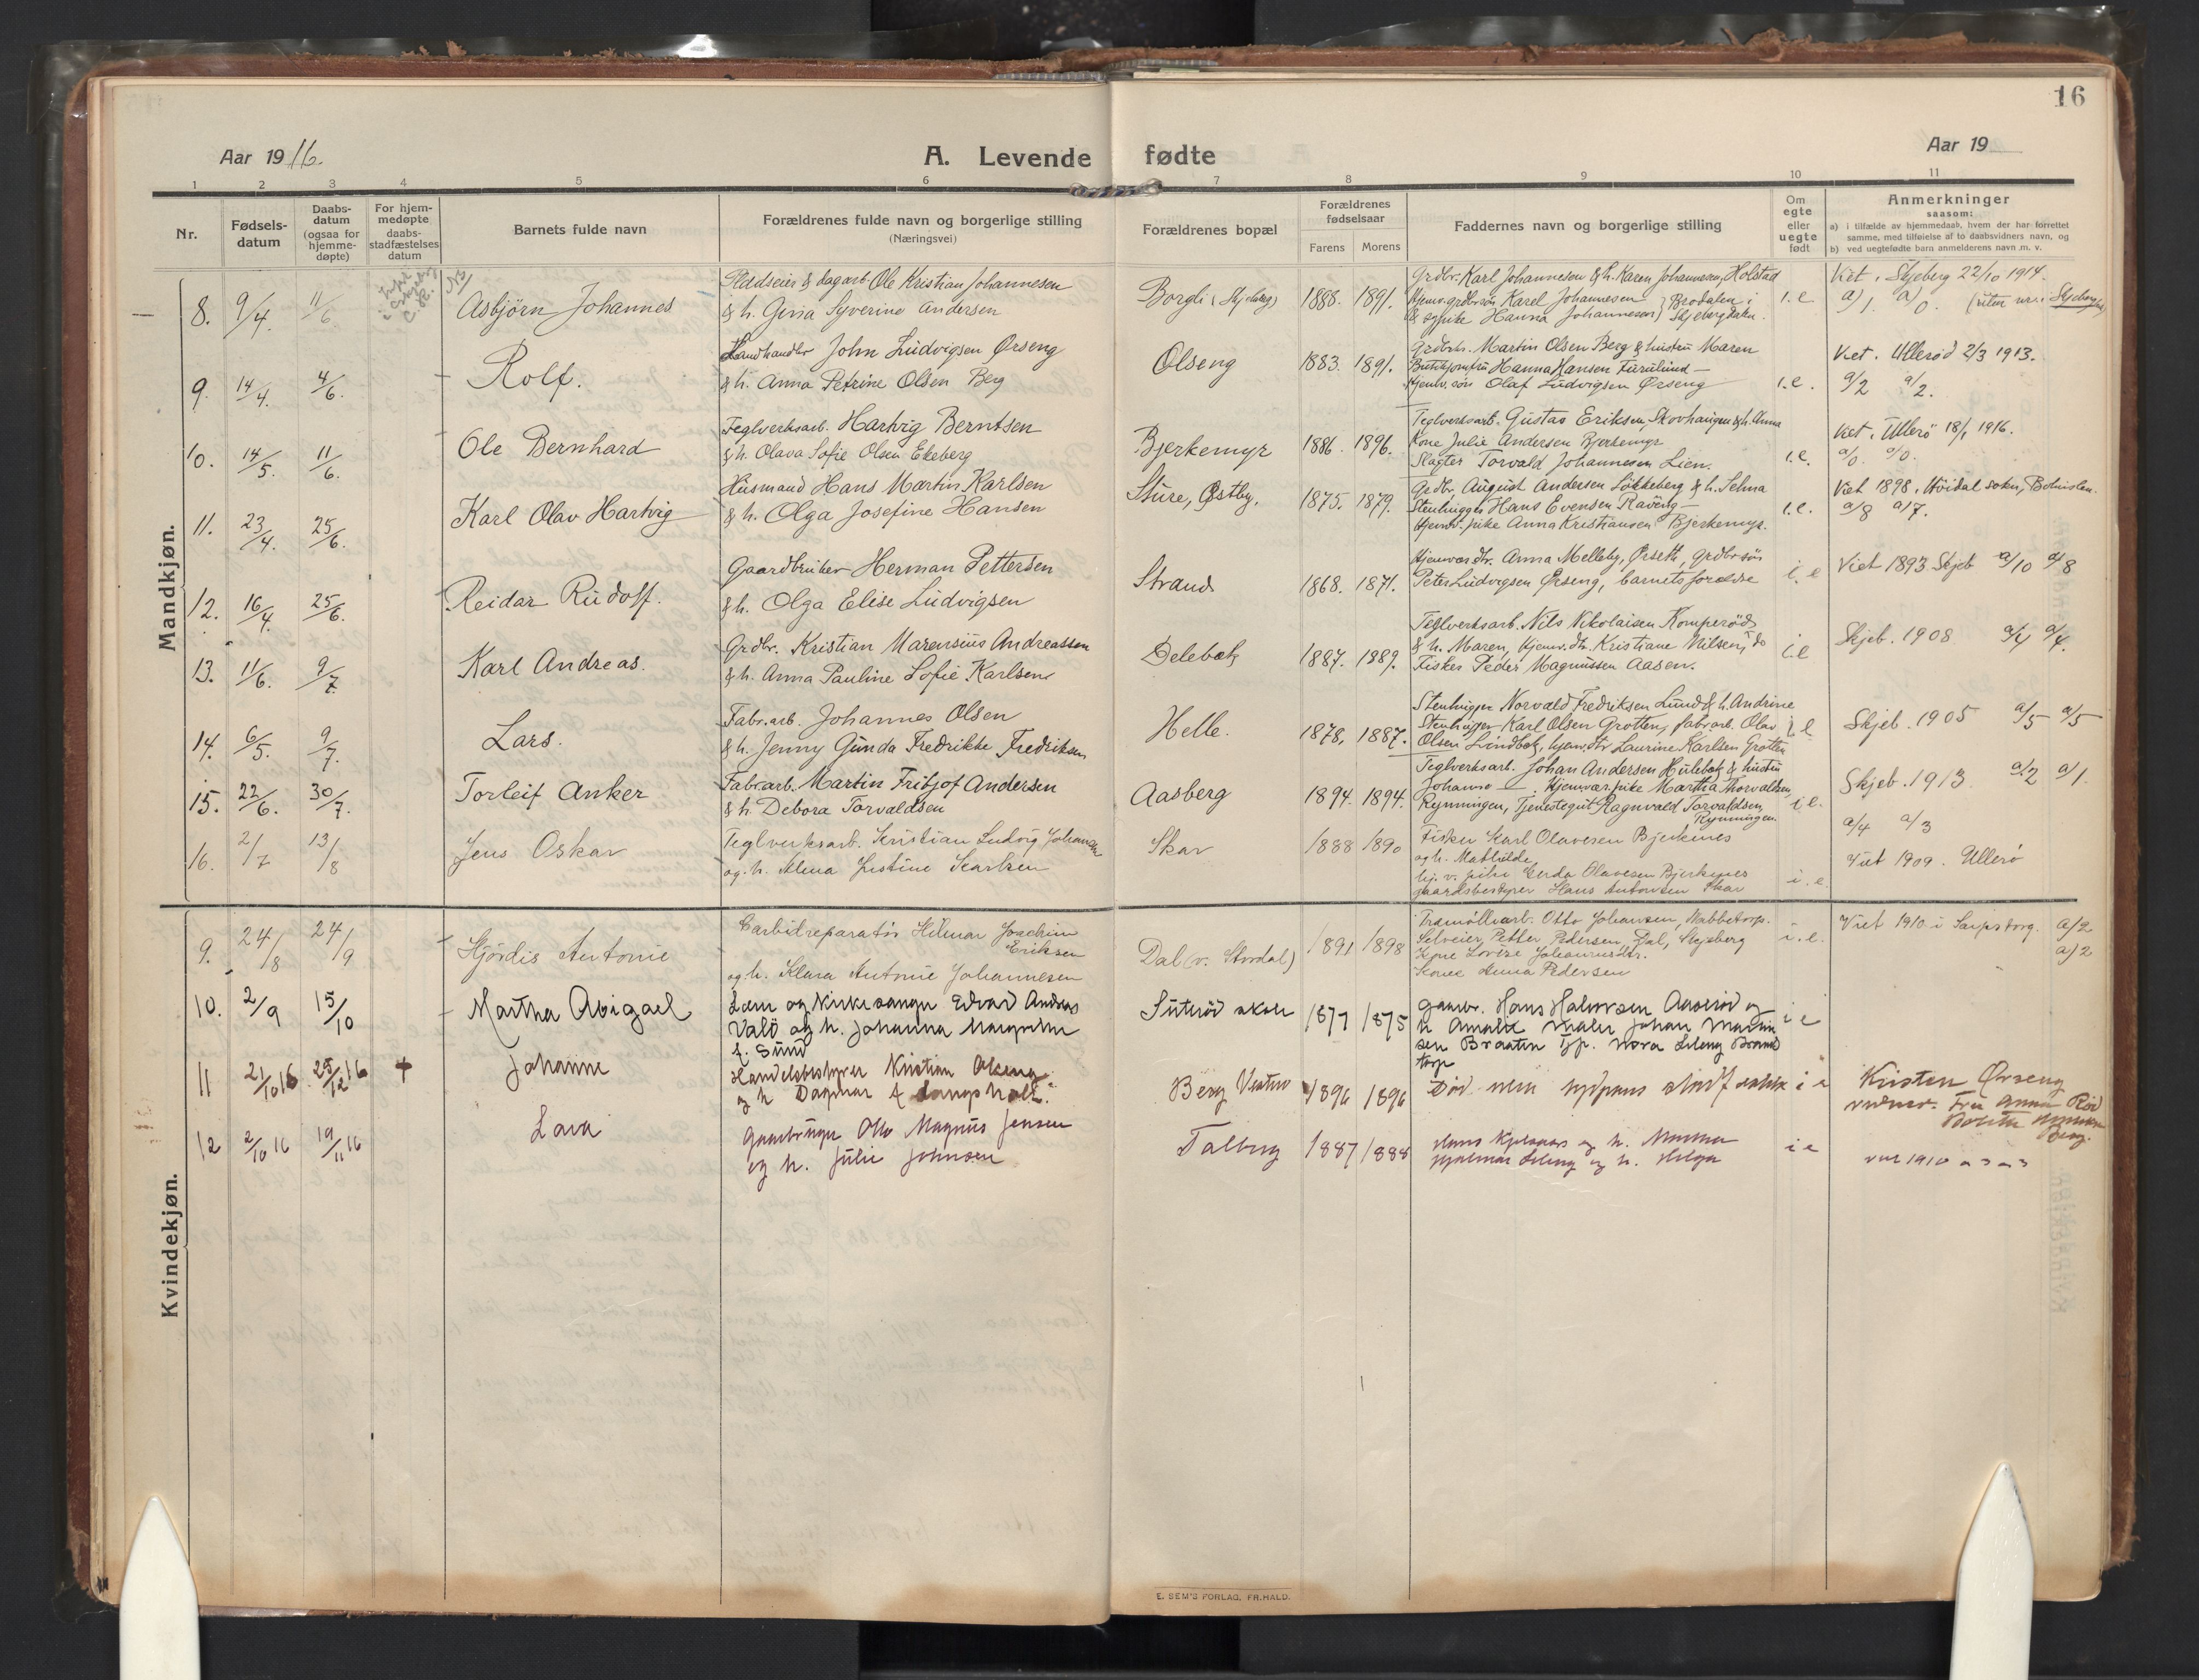 16
Aar 1916.
A. Levende fødte
Aar 19
1 2 3 4 5 6 7 8 9 10 11
Nr.
Fødsels-
datum
Daabs-
datum
(ogsaa for
hjemme-
døpte)
For hjem-
medøpte
daabs-
stadfæstelses
datum
Barnets fulde navn
Forældrenes fulde navn og borgerlige stilling
(Næringsvei)
Forældrenes bopæl
Forældrenes
fødselsaar
Farens Morens
Faddernes navn og borgerlige stilling
Om
egte
eller
uegte
født
Anmerkninger
saasom:
a) i tilfælde av hjemmedaab, hvem der har forrettet
samme, med tilføielse af to daabsvidners navn, og
b) ved uegtefødte barn anmelderens navn m. v.
Mandkjøn.
8. 9/4. 11/6 Asbjørn Johannes
& dagarb. Ole Kristian Johannesen
& h. Gina Syverine Andersen
Borgli (Skjeberg) 1888. 1891.
Grdbr. Karl Johannesen & h. Karen Johannesen, Holstad
Hjemv. grdbrsøn Karel Johannesen } Brodalen i
& pike Hanna Johannesen } Skjebergdalen.
i.e
Viet i Skjeberg 22/10 1914.
a) 1. a) 0. (uten nr. i Skjeberg)
9. 14/4. 4/6. Rolf.
Landhandler John Ludvigsen Ørseng
& h. Anna Petrine Olsen Berg
Olseng 1883. 1891.
Grdbr. Martin Olsen Berg & hustru Maren
Butikjomfru Hanna Hansen Furulund –
Hjemv. søn Olaf Ludvigsen Ørseng
i.e.
Viet i Ullerød 2/3 1913.
a/2 a/2.
10. 14/5. 11/6. Ole Bernhard
Teglverksarb. Hartvig Berntsen
& h. Olava Sofie Olsen Ekeberg
Bjerkemyr 1886. 1896.
Teglverksarb. Gustav Eriksen, Skovhaugen & h. Anna
Kone Julie Andersen Bjerkemyr
Slagter Torvald Johannesen Lien.
i.e.
Viet i Ullerø 18/1 1916.
a/0. a/0.
11. 23/4. 25/6. Karl Olav Hartvig
Husmand Hans Martin Karlsen
& h. Olga Josefine Hansen
Sture, Østby. 1875. 1879.
Grdbr. August Andersen Løkkeberg & h. Selma
Stenhugger Hans Evensen Røveng –
Hjemv. pike Anna Kristiansen Bjerkemyr.
i.e.
Viet 1898 i
a/8 a/7.
12. 16/4. 25/6. Reidar Rudolf.
Gaardbruker Herman Pettersen
& h. Olga Elise Ludvigsen
Strand 1868. 1871.
Hjemv. dtr. Anna Melleby, Ørseth, grdbrsøn
Peter Ludvigsen Ørseng, barnets forældre
i.e
Viet 1893 Skjeb a/10 a/8
13. 11/6. 9/7 Karl Andreas.
Grdbr. Kristian Marensius Andreassen
& h. Anna Pauline Sofie Karlsen
Delebæk 1887. 1889.
Teglverksarb. Nils Nikolaisen Komperød
& h. Maren, Hjemv. dtr. Kristiane Nilsen, do
Fisker Peder Magnussen Aasen.
i.e
Skjeb. 1908 a/4 a/4.
14. 6/5. 9/7. Lars.
Fabr. arb. Johannes Olsen
& h. Jenny Gunda Fredrikke Fredriksen
Helle. 1878, 1887.
Stenhugger Norvald Fredriksen Lund & h. Andrine
Stenhugger Karl Olsen Grotten, fabr. arb. Olav
Olsen Lindbæk, hjemv. dtr Laurine Karlsen Grotten
i.e
Skjeb. 1905 a/5 a/5
15. 22/6. 30/7. Torleif Anker
Fabr. arb. Martin Fritjof Andersen
& h. Debora Torvaldsen
Aasberg 1894. 1894.
Teglverksarb. Johan Andersen Hulebæk & hustru
Johanne –. Hjemvær. pike Martha Thorvaldsen,
Rynningen, Tjenestegut Ragnvald Torvaldsen,
Rynningen.
i.e.
Skjeb. 1913 a/2 a/1.
16. 2/7 13/8 Jens Oskar
Teglverksarb. Kristian Ludvig Johansen
og h. Alma Justine Karlsen
Skar 1888 1890
Fisker Karl Olavesen Bjerkenes
og h. Mathilde,
hj. v. pike Gerda Olavesen Bjerkenes
gaardsbestyrer Hans Antonsen Skar
i.e.
a/4 a/3
Viet 1909. Ullerø
Kvindekjøn.
9. 24/8 24/9 Hjørdis Antonie
Carbidreparatør Hilmar Joachim
Eriksen
og h. Klara Antonie Johannesen
Dal (v. Stordal) 1891 1898
Otto Johansen, Nabbetorp.
Selveier Petter Pedersen, Dal, Skjeberg
Kone Lovise
Kone Anna Pedersen
i.e.
Viet 1910 i Sarpsborg. a/2
a/2
10. 2/9 15/10 Martha Abigael
Lærer og kirkesanger Edvard Andreas
Valø og h. Johanna
f. Sund
Suterød skole 1877 1875
Gaardbr. Hans Halvorsen Aaserød og
h. Amalie Maler Johan
sen Braaten
i e
11 21/10 16 25/12 16 + Johanne
Handelsbestyrer Kristian Olseng
og h Dagmar f Langsholt.
Berg Vestre 1896 1896
Død
i e
Kristen Ørseng
Fru Anna Rød
Berg.
12 2/10 16 19/11 16 Lava
Gaardbruger Otto Magnus Jensen
og h. Julie Johnsen
Talberg 1887 1888
Hans og h.
Hjalmar og h. Helga
i e
viet 1910 a 3 a 3
E. SEM'S FORLAG, FR.HALD.